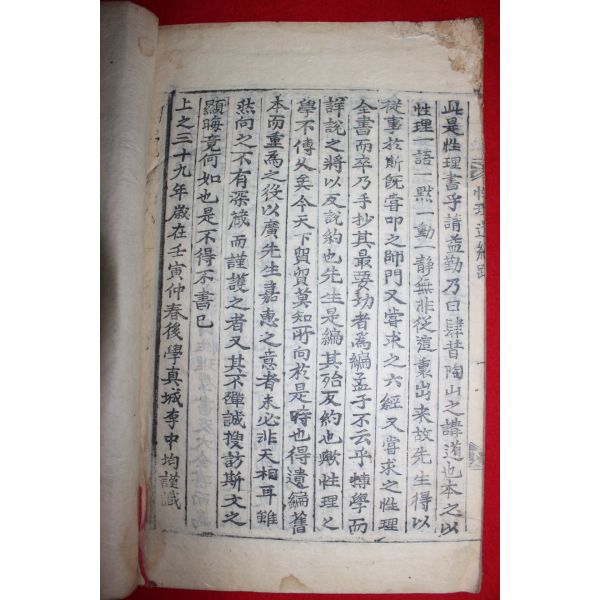 此是性理書乎請益勤乃曰肆昔陶山之講道也本之以
性理一語一點一動一靜無非從這裏出来故先生得以
從事於斯旣嘗叩之師門又嘗求之六經又嘗求之性理
全書而卒乃手抄其最要切者爲編孟子不云乎博學而
詳說之將以反說約也先生是編其殆反約也歟性理之
學不傳久矣今天下貿貿莫知所向於是時也得遺編舊
本而重爲之役以廣先生嘉惠之意者未必非天相耳雖
然向之不有深藏而謹護之者又其不殫誠搜訪斯文之
顯晦竟何如也是不得不書已
上之三十九年歲在壬寅仲春後學真城李中均謹識
性理遺編跋